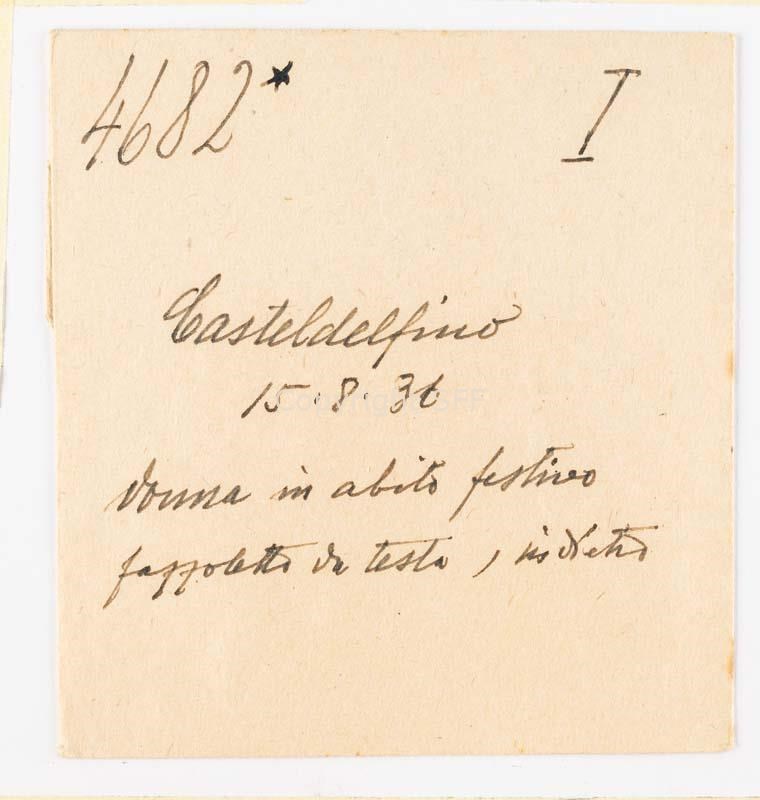 4682* I
Casteldelfino
15.8.36
donna in abito festivo
fazzoletto da testa, indietro